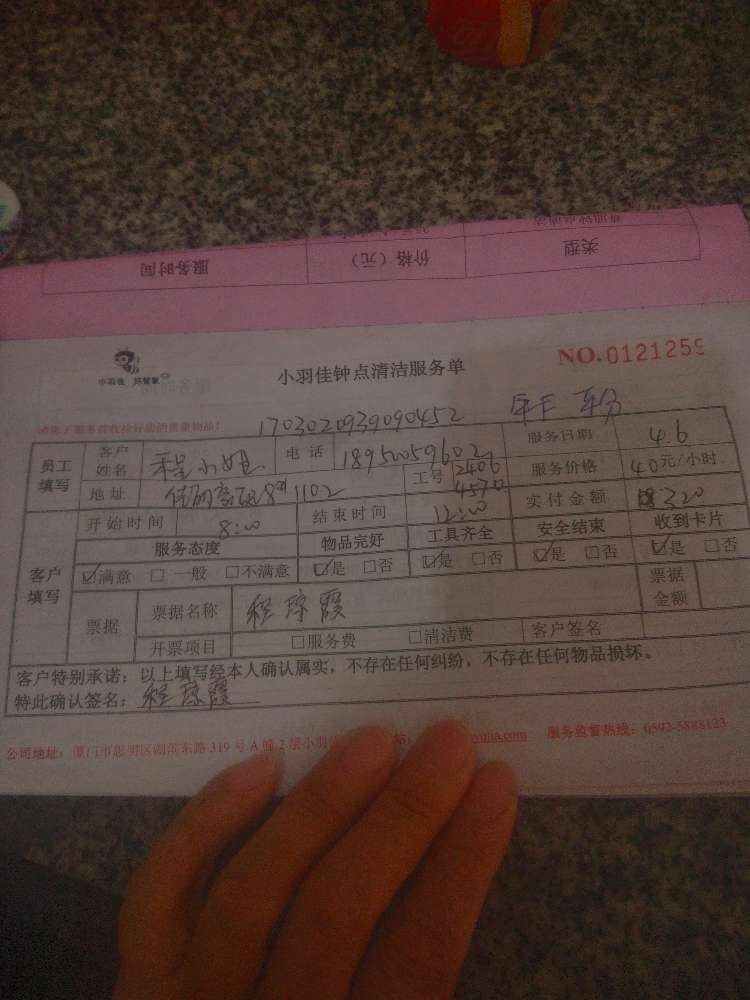 类型 价格（元） 服务时间
小羽佳 好管家
小羽佳钟点清洁服务单 NO.0121259
1703020939090452 年卡
员工填写 客户姓名 程小姐 电话 18950059602 服务日期 4.6
地址 8 1102 工号 2406 4570 服务价格 40元/小时
客户填写 开始时间 8:00 结束时间 12:00 实付金额 320
服务态度 物品完好 工具齐全 安全结束 收到卡片
☑满意 □一般 □不满意 ☑是 □否 ☑是 □否 ☑是 □否 ☑是 □否
票据 票据名称 程琼霞 票据金额
开票项目 □服务费 □清洁费 客户签名
客户特别承诺：以上填写经本人确认属实，不存在任何纠纷，不存在任何物品损坏。
特此确认签名：程琼霞
公司地址：厦门市思明区湖滨东路319号A幢2层小羽 .com 服务监督热线：0592-5888123